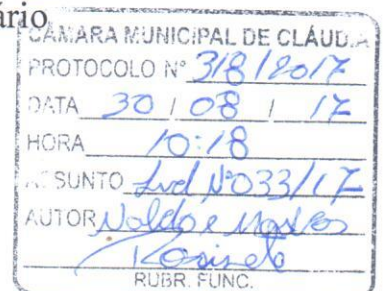 ário
CÂMARA MUNICIPAL DE CLÁUDIA
PROTOCOLO Nº 318/2017
DATA 30 / 08 / 17
HORA 10:18
ASSUNTO Ind Nº 033/17
AUTOR Naldo e Marcos
RUBR. FUNC.